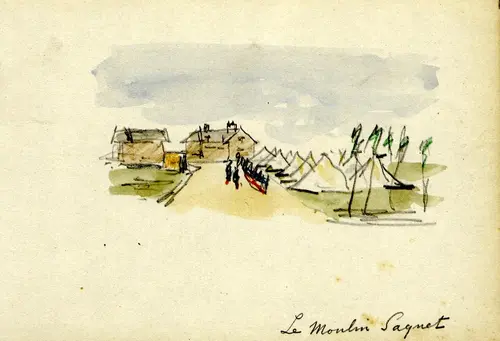 Le Moulin Saquet